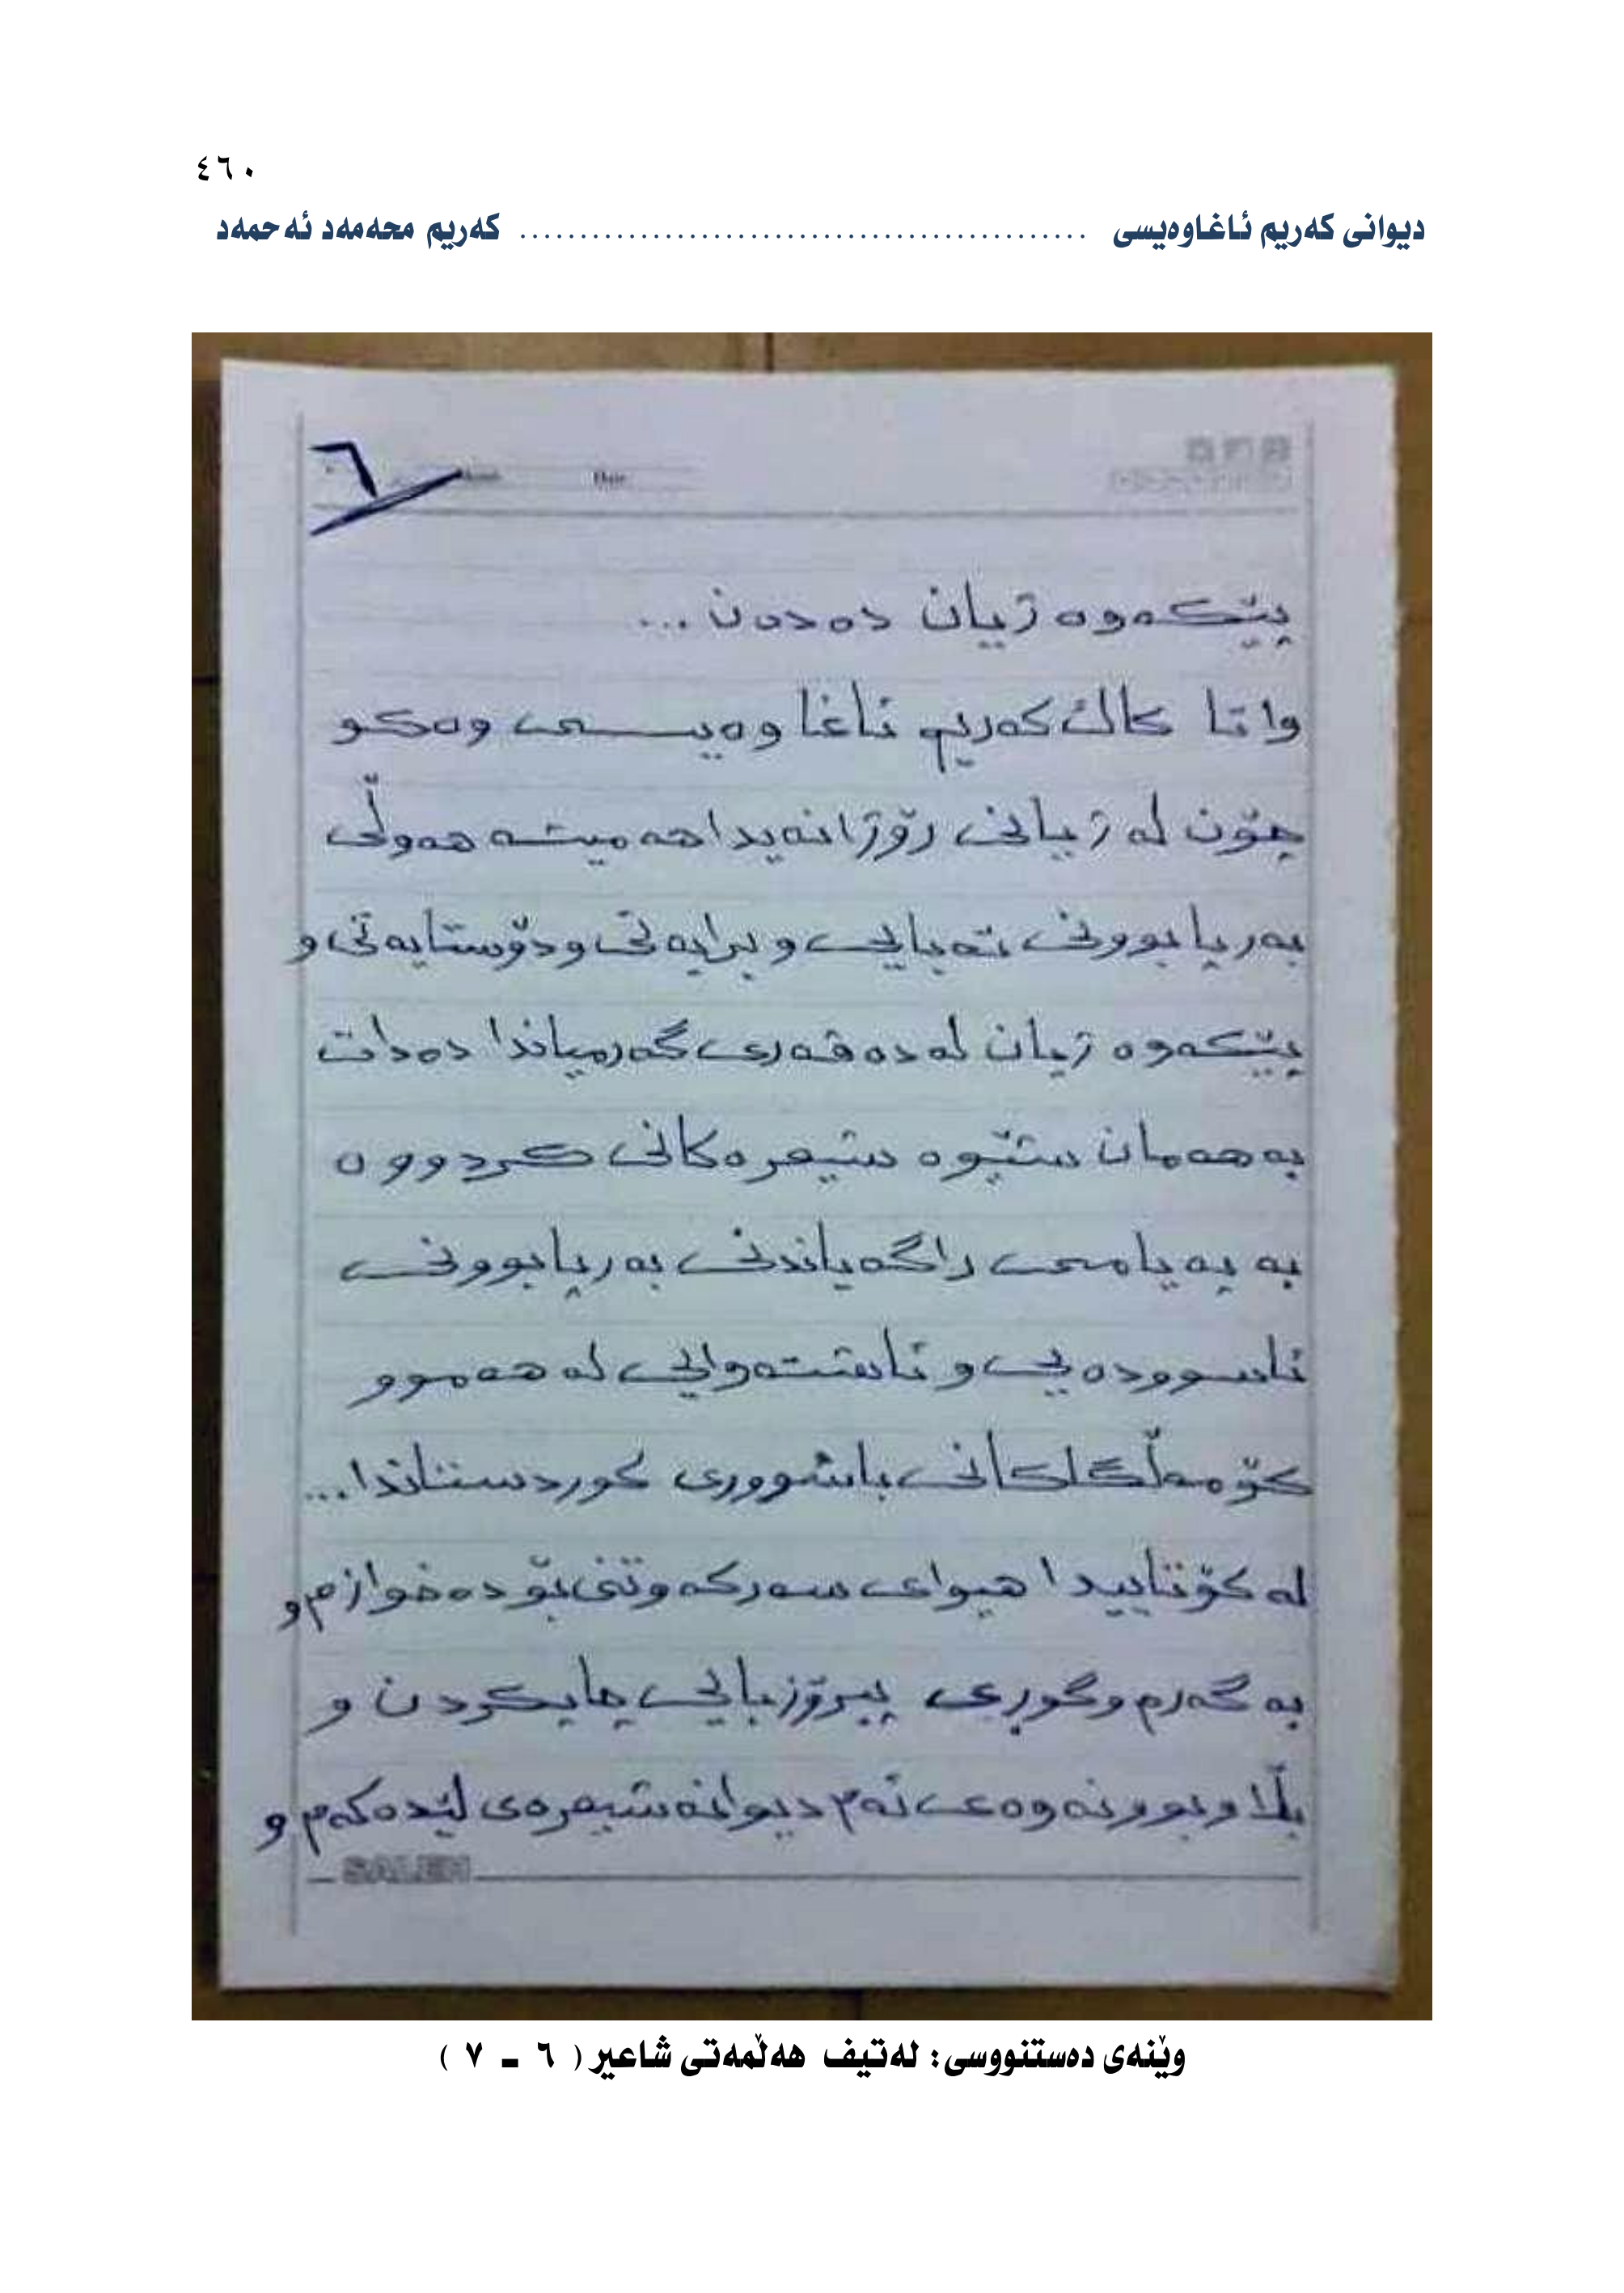 ٤٦٠
دیوانی کەریم ئاغاوەیسی ............................................... کەریم محەمەد ئەحمەد
٦
پێکەوە ژیان دەدەن...
واتا کاک کەریم ئاغاوەیسی وەکو
چۆن لە ژیانی رۆژانەیدا هەمیشە هەوڵی
بەرپابوونی تەبایی و برایەتی و دۆستایەتی و
پێکەوە ژیان لە دەڤەری گەرمیاندا دەدات
بە هەمان شێوە شیعرەکانی کردووە
بە پەیامی راگەیاندنی بەرپابوونی
ئاسوودەیی و ئاشتەوایی لە هەموو
کۆمەڵگاکانی باشووری کوردستاندا...
لە کۆتاییدا هیوای سەرکەوتنی بۆ دەخوازم و
بە گەرم و گوڕی پیرۆزبایی چاپکردن و
بڵاوبوونەوەی ئەم دیوانە شیعرەی لێدەکەم و
SALEH
وێنەی دەستنووسی: لەتیف هەڵمەتی شاعیر ( ٦ ـ ٧ )